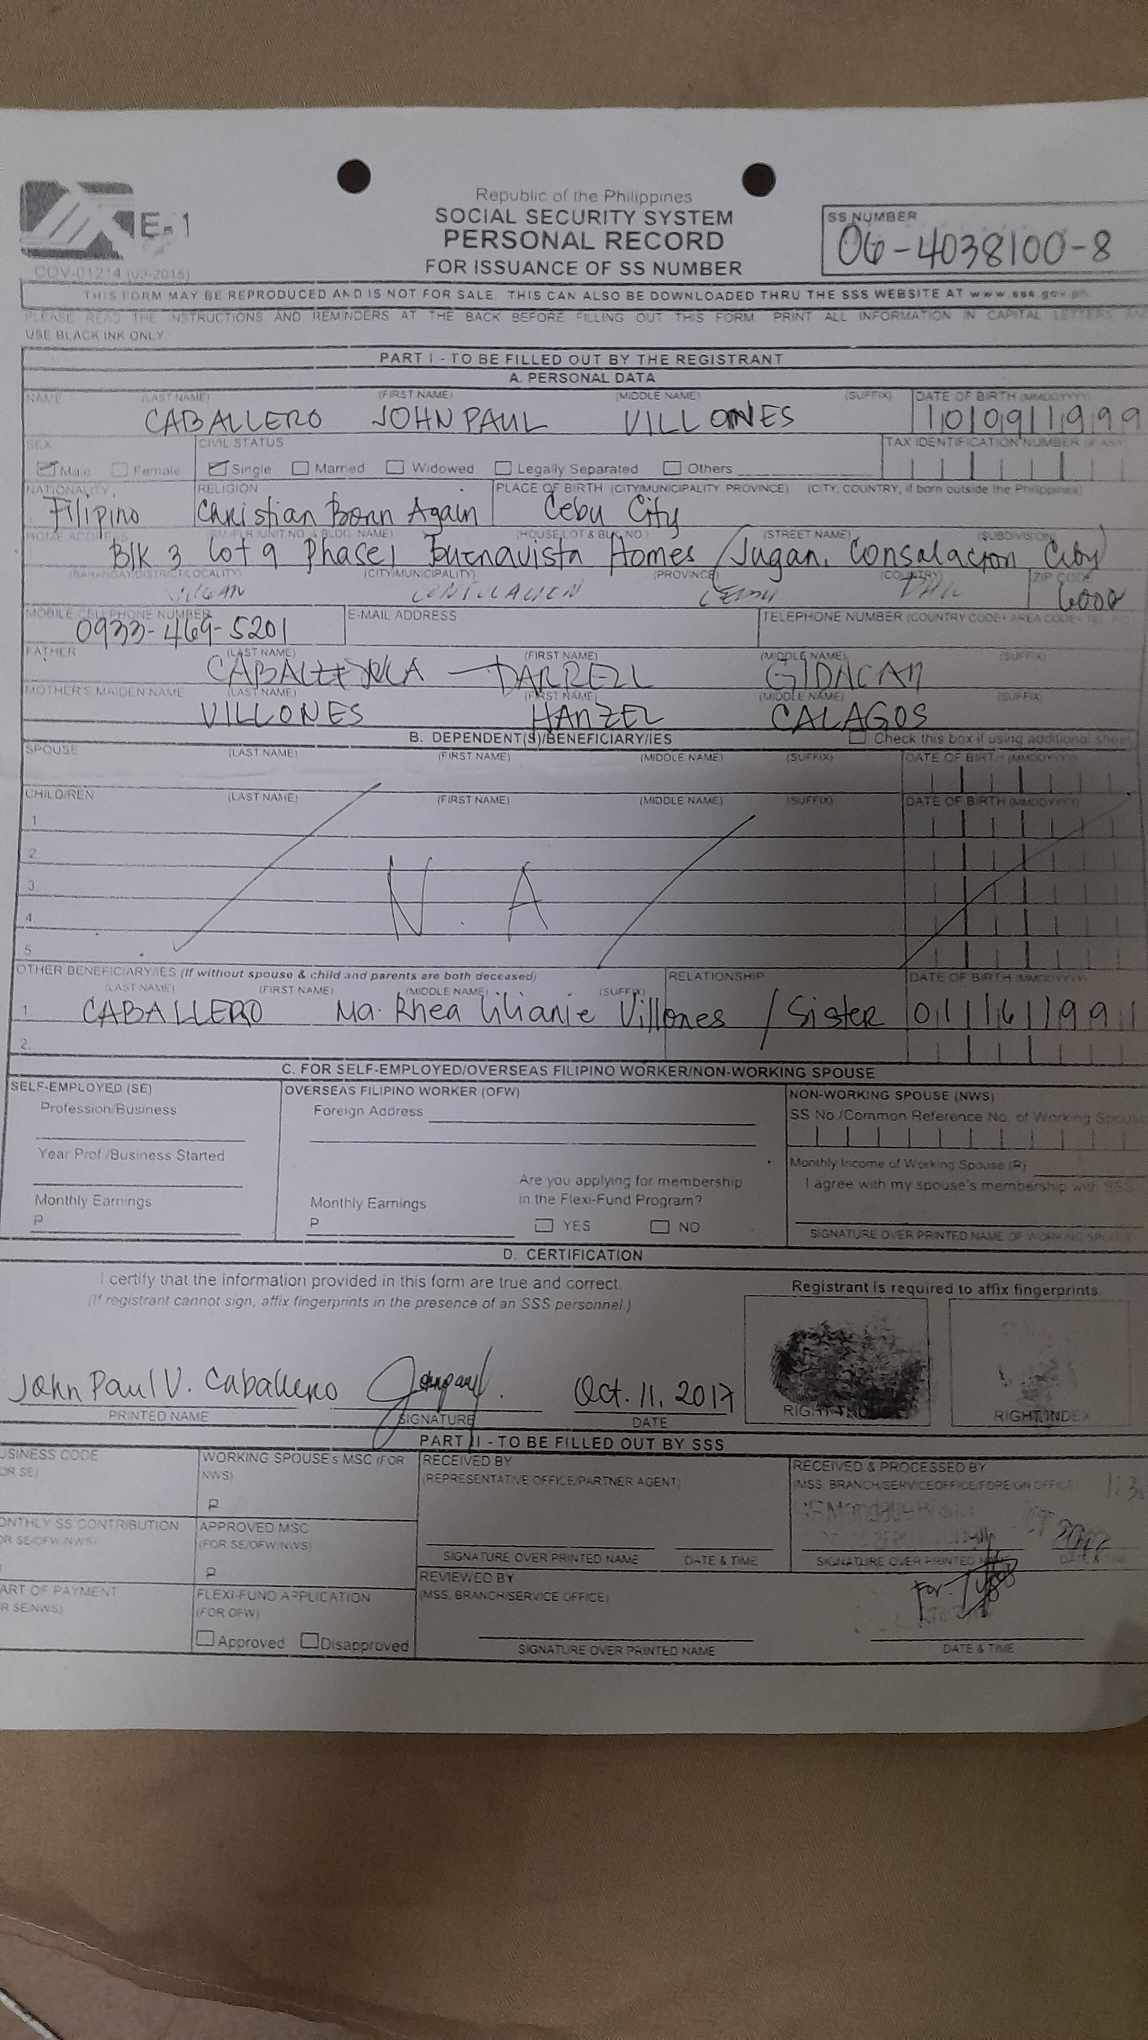 E-1
COV-01214 (09-2015)
Republic of the Philippines
SOCIAL SECURITY SYSTEM
PERSONAL RECORD
FOR ISSUANCE OF SS NUMBER
SS NUMBER
06-4038100-8
THIS FORM MAY BE REPRODUCED AND IS NOT FOR SALE. THIS CAN ALSO BE DOWNLOADED THRU THE SSS WEBSITE AT www.sss.gov.ph
PLEASE READ THE INSTRUCTIONS AND REMINDERS AT THE BACK BEFORE FILLING OUT THIS FORM. PRINT ALL INFORMATION IN CAPITAL LETTERS AND
USE BLACK INK ONLY.
PART I - TO BE FILLED OUT BY THE REGISTRANT
A. PERSONAL DATA
NAME (LAST NAME) (FIRST NAME) (MIDDLE NAME) (SUFFIX) DATE OF BIRTH (MMDDYYYY)
CABALLERO JOHN PAUL VILLONES 10091999
SEX CIVIL STATUS TAX IDENTIFICATION NUMBER (IF ANY)
Male Female Single Married Widowed Legally Separated Others
NATIONALITY RELIGION PLACE OF BIRTH (CITY/MUNICIPALITY, PROVINCE) (CITY, COUNTRY, if born outside the Philippines)
Filipino Christian Born Again Cebu City
HOME ADDRESS (RM./FLR./UNIT NO. & BLDG. NAME) (HOUSE/LOT & BLK. NO.) (STREET NAME) (SUBDIVISION)
Blk 3 lot 9 Phase 1 Buenavista Homes / Jugan, Consolacion Cebu
(BARANGAY/DISTRICT/LOCALITY) (CITY/MUNICIPALITY) (PROVINCE) (COUNTRY) ZIP CODE
JUGAN CONSOLACION CEBU PHIL 6000
MOBILE/CELLPHONE NUMBER E-MAIL ADDRESS TELEPHONE NUMBER (COUNTRY CODE+ AREA CODE+ TEL. NO.)
0933-469-5201
FATHER (LAST NAME) (FIRST NAME) (MIDDLE NAME) (SUFFIX)
DARRELL
MOTHER'S MAIDEN NAME (LAST NAME) (FIRST NAME) (MIDDLE NAME) (SUFFIX)
VILLONES HANZEL CALAGOS
B. DEPENDENT(S)/BENEFICIARY/IES
Check this box if using additional sheet
SPOUSE (LAST NAME) (FIRST NAME) (MIDDLE NAME) (SUFFIX) DATE OF BIRTH (MMDDYYYY)
CHILD/REN (LAST NAME) (FIRST NAME) (MIDDLE NAME) (SUFFIX) DATE OF BIRTH (MMDDYYYY)
1.
2.
3.
N.A
4.
5.
OTHER BENEFICIARY/IES (If without spouse & child and parents are both deceased) RELATIONSHIP DATE OF BIRTH (MMDDYYYY)
(LAST NAME) (FIRST NAME) (MIDDLE NAME) (SUFFIX)
1. CABALLERO Ma. Rhea Lilianie Villones / Sister 01161991
2.
C. FOR SELF-EMPLOYED/OVERSEAS FILIPINO WORKER/NON-WORKING SPOUSE
SELF-EMPLOYED (SE) OVERSEAS FILIPINO WORKER (OFW) NON-WORKING SPOUSE (NWS)
Profession/Business Foreign Address SS No./Common Reference No. of Working Spouse
Year Prof./Business Started
Monthly Income of Working Spouse (₱)
Are you applying for membership
in the Flexi-Fund Program?
I agree with my spouse's membership with SSS.
Monthly Earnings Monthly Earnings
₱ ₱ YES NO
SIGNATURE OVER PRINTED NAME OF WORKING SPOUSE
D. CERTIFICATION
I certify that the information provided in this form are true and correct.
(If registrant cannot sign, affix fingerprints in the presence of an SSS personnel.)
Registrant is required to affix fingerprints.
John Paul V. Caballero Oct. 11, 2017
PRINTED NAME SIGNATURE DATE RIGHT THUMB RIGHT INDEX
PART II - TO BE FILLED OUT BY SSS
USINESS CODE
OR SE)
WORKING SPOUSE's MSC (FOR
NWS)
₱
RECEIVED BY
(REPRESENTATIVE OFFICE/PARTNER AGENT)
RECEIVED & PROCESSED BY
(MSS, BRANCH/SERVICE OFFICE/FOREIGN OFFICE)
ONTHLY SS CONTRIBUTION
OR SE/OFW/NWS)
APPROVED MSC
(FOR SE/OFW/NWS)
₱
SIGNATURE OVER PRINTED NAME DATE & TIME
SIGNATURE OVER PRINTED NAME DATE & TIME
ART OF PAYMENT
R SE/NWS)
FLEXI-FUND APPLICATION
(FOR OFW)
Approved Disapproved
REVIEWED BY
(MSS, BRANCH/SERVICE OFFICE)
For-
SIGNATURE OVER PRINTED NAME DATE & TIME